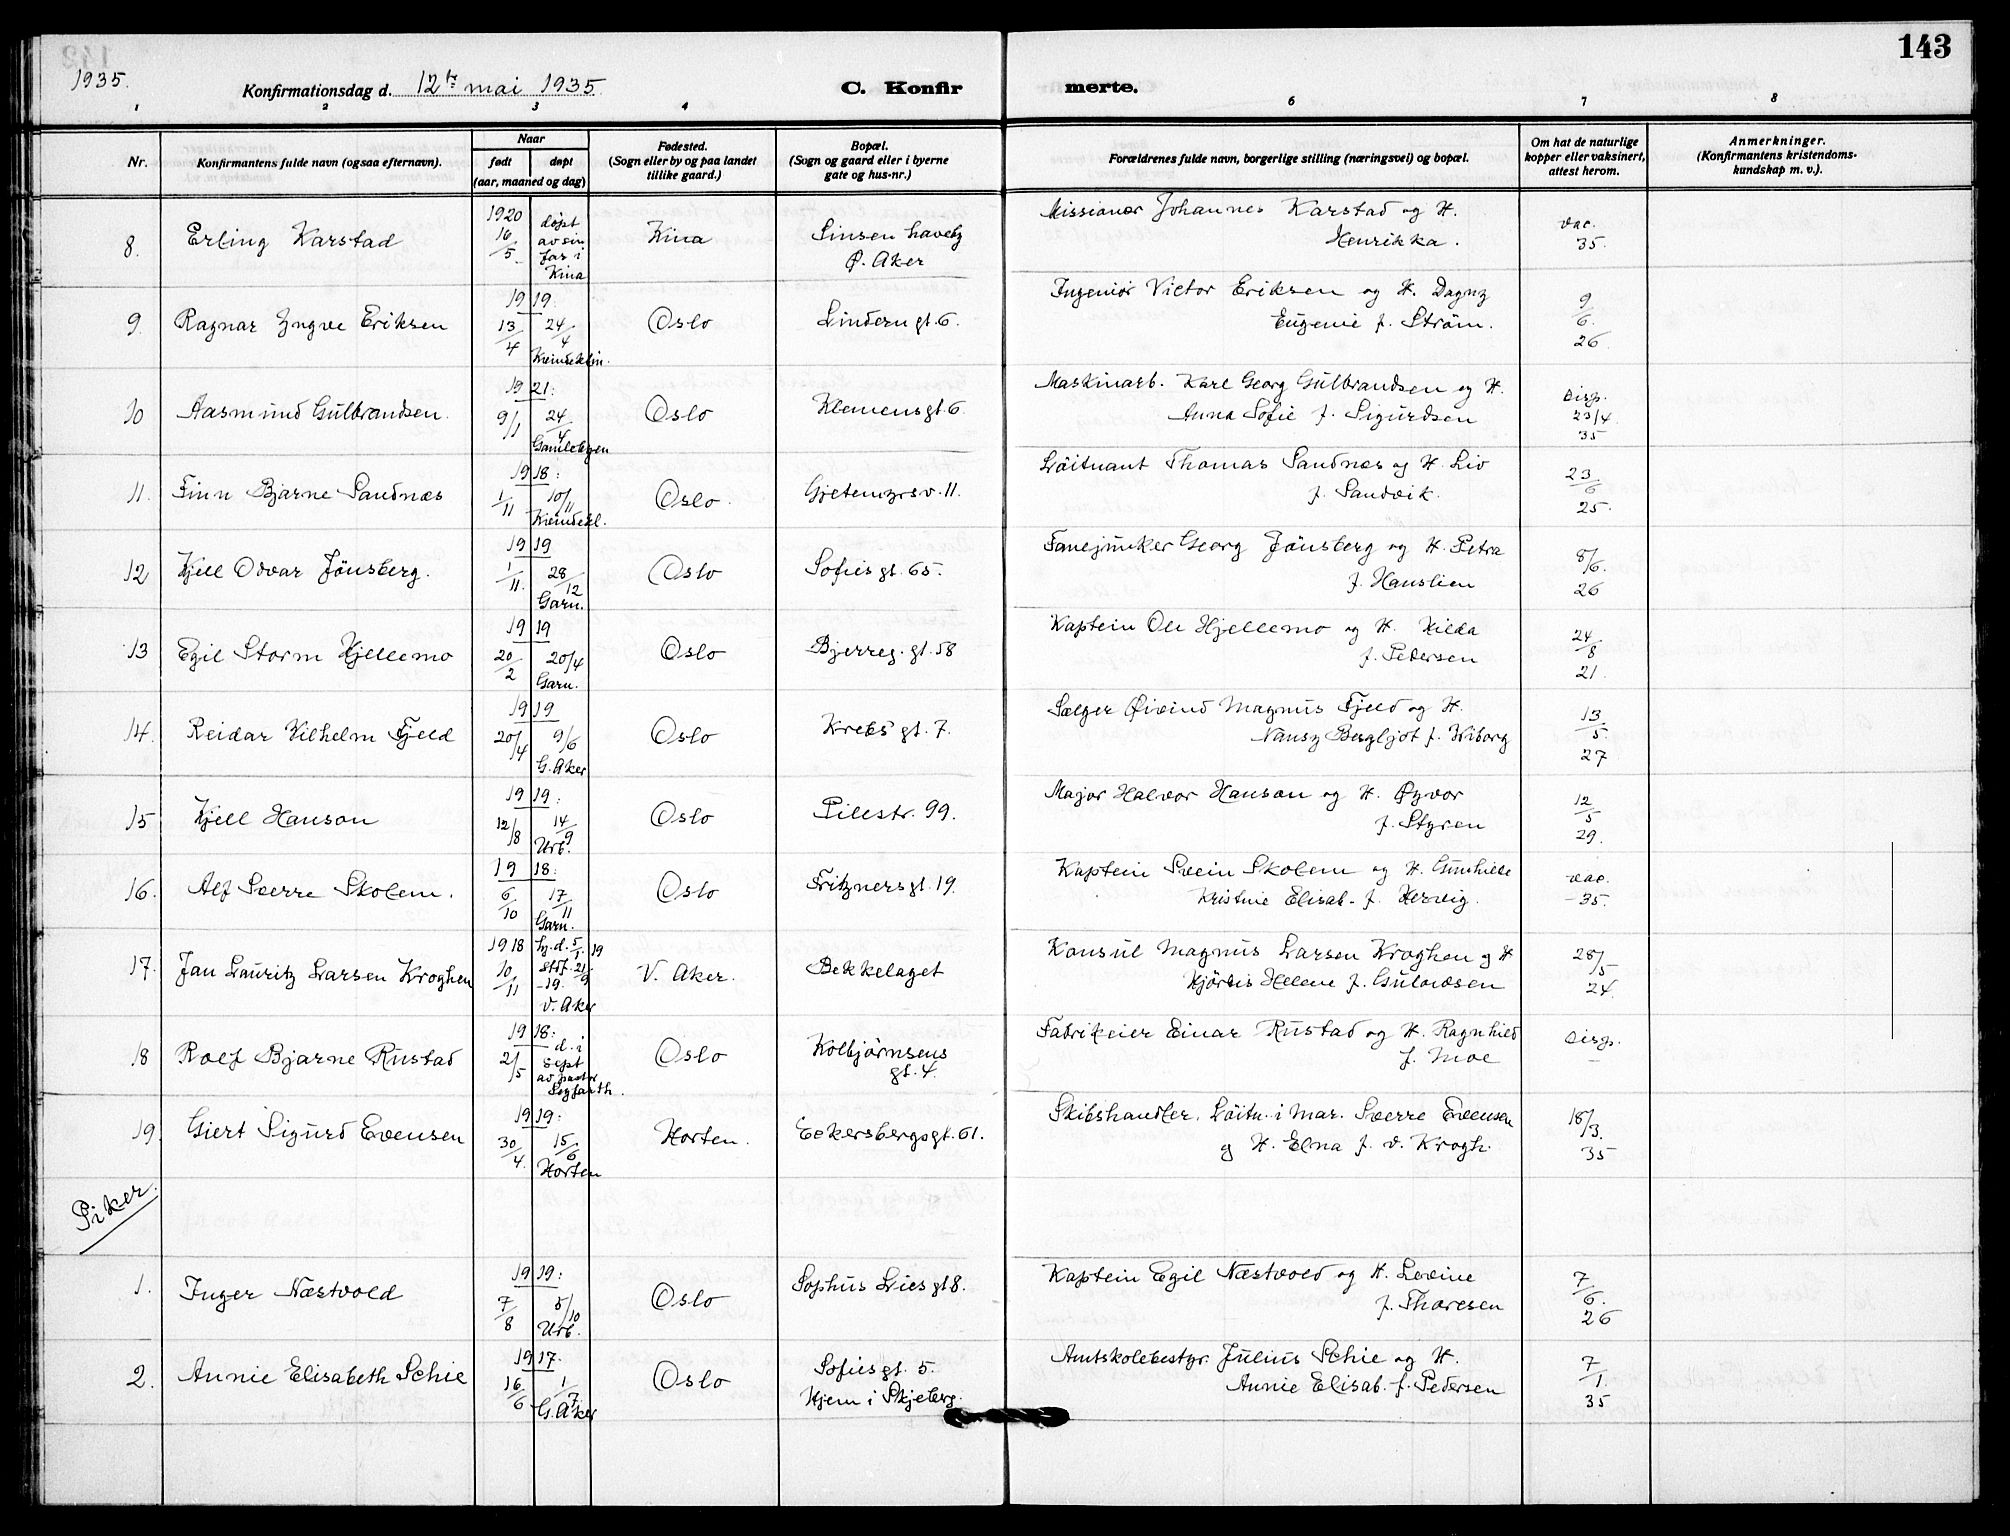 143
1935.
Konfirmationsdag d. 12te mai 1935.
C. Konfir
merte.
1 2 3 4 6 7 8
Nr.
Konfirmantens fulde navn (ogsaa efternavn).
Naar
født
døpt
(aar, maaned og dag)
Fødested.
(Sogn eller by og paa landet
tillike gaard.)
Bopæl.
(Sogn og gaard eller i byerne
gate og hus-nr.)
Forældrenes fulde navn, borgerlige stilling (næringsvei) og bopæl.
Om hat de naturlige
kopper eller vaksinert,
attest herom.
Anmerkninger.
(Konfirmantens kristendoms-
kundskap m. v.).
8. Erling Karstad
1920 16/5
døpt
av sin
far i
Kina
Kina
Sinsen haveby
Ø. Aker
Missionær Johannes Karstad og H.
Henrikka.
vac.
35.
9. Ragnar Yngve Eriksen
19 19.
13/4 24/4
Oslo
Lindern gt. 6.
Ingeniör Victor Eriksen og H. Dagny
Eugenie f. Ström.
9/6.
26
10 Aasmund Gulbrandsen.
19 21:
9/1 24/4
Gamlebyen
Oslo
Klemensgt. 6.
Maskinarb. Karl Georg Gulbrandsen og H.
Anna Sofie f. Sigurdsen
disp.
23/4
35
11. Finn Bjarne Sandnæs
19 18:
1/11 10/11
Oslo.
Gjetemyrsv. 11.
Löitnant Thomas Sandnæs og H. Liv
f. Sandvik.
23/6
25.
12 Kjell Odvar Jönsberg.
19 19
1/11. 28/12
Garn.
Oslo
Sofies gt. 65.
Fanejunker Georg Jönsberg og H. Petra
f. Hanslien
8/6.
26
13 Egil Storm Hjellemo
19 19
20/2 20/4
Garn.
Oslo
Bjerreg. gt. 58
Kaptein Ole Hjellemo og H. Hilda
f. Pedersen
24/8
21
14. Reidar Vilhelm Fjeld
19 19
20/4 9/6
G. Aker
Oslo
Krebs' gt. 7.
Sælger Öivind Magnus Fjeld og H.
Nansy Bergljot f. Wiborg
13/5
27
15 Kjell Hanson
19 19:
12/8 14/9
Urb.
Oslo
Pilestr. 99.
Major Halvor Hanson og H. Öyvor
f. Styren
12/5
29.
16. Alf Sverre Skolem.
19 18:
6/10 17/11
Garn.
Oslo
Fritznersgt. 19.
Kaptein Svein Skolem og H. Gunhilde
Kristine Elisab. f. Hervig.
vac.
-35.
17. Jan Lauritz Larsen Kroghen
1918 hj. d. 5/1 19
10/11 stdf. 21/9
-19.
V. Aker
V. Aker.
Bekkelaget
Konsul Magnus Larsen Kroghen og H
Hjördis Helene f. Gulowsen
28/5
24.
18 Rolf Bjarne Rustad
19 18:
2/5
d. i
Sept
av pastor
Oslo
Kolbjörnsens
gt. 4.
Fabrikeier Einar Rustad og H. Ragnhild
f. Moe
disp.
19. Giert Sigurd Evensen
19 19:
30/4. 15/6
Horten
Horten.
Eckersbergsgt. 61.
Skibshandler. Löitn. i Mar. Sverre Evensen
og H. Elna f. v. Krogh.
18/3.
35
Piker.
1. Inger Næstvold
19 19:
7/8 5/10
Urb.
Oslo
Sophus Lies gt 8.
Kaptein Egil Næstvold og H. Lovine
f. Thoresen
7/6.
26
2. Annie Elisabeth Schie
19 17.
16/6 1/7
G. Aker
Oslo
Sofiesgt. 5.
Hjem i Skjeberg.
Amtskolebestyr. Julius Schie og H.
Annie Elisab. f. Pedersen
7/1.
35